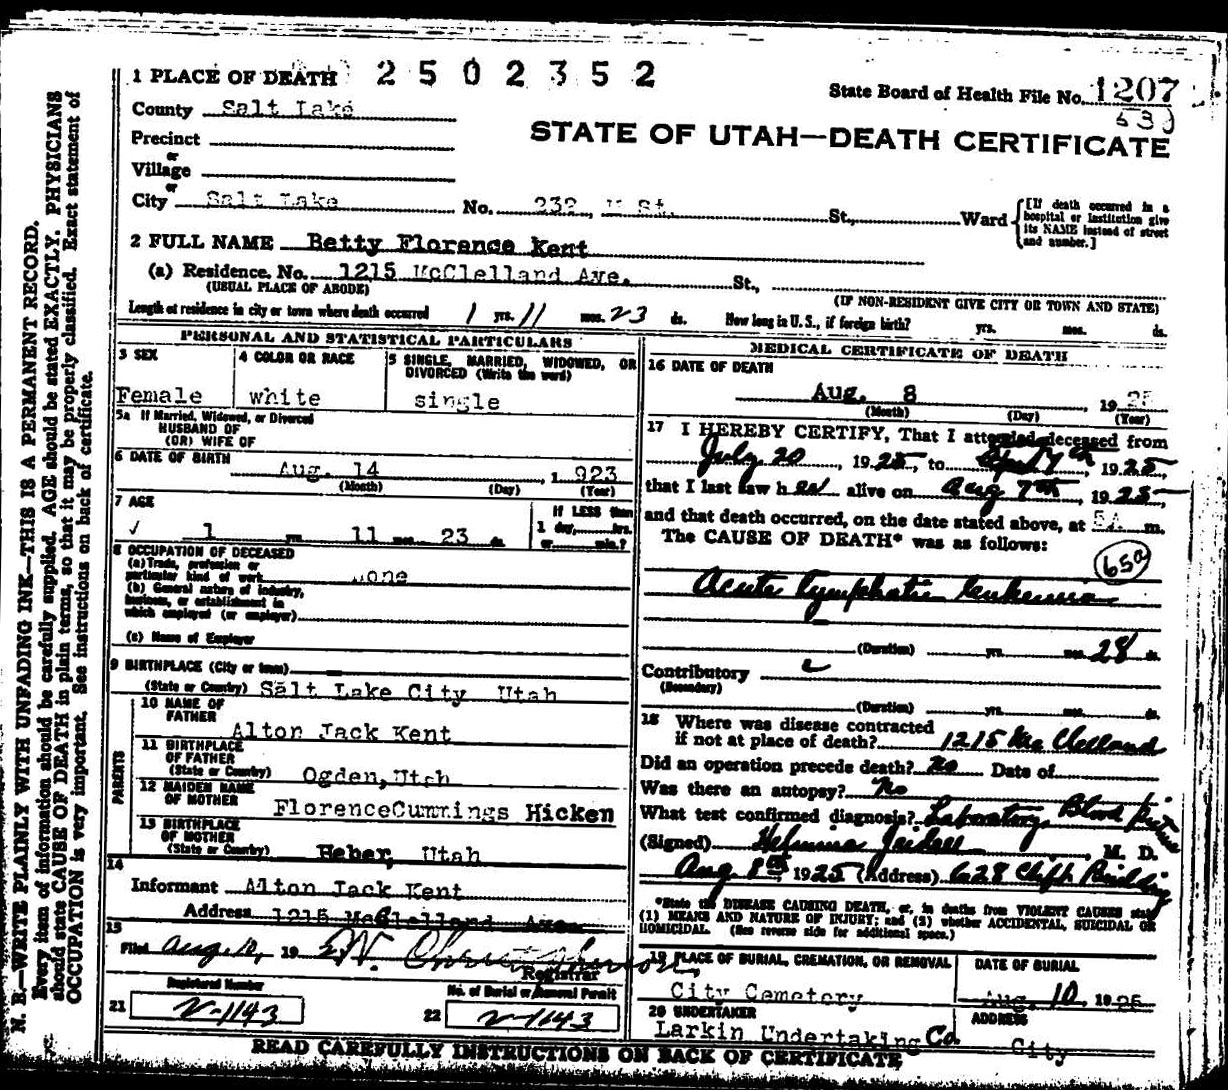 1 PLACE OF DEATH 2502352
State Board of Health File No. 1207
530
County Salt Lake
STATE OF UTAH—DEATH CERTIFICATE
Precinct
or
Village
or
City Salt Lake No. 232 U St. St., Ward
[If death occurred in a hospital or institution give its NAME instead of street and number.]
2 FULL NAME Betty Florence Kent
(a) Residence, No. 1215 McClelland Ave. St.,
(USUAL PLACE OF ABODE) (IF NON-RESIDENT GIVE CITY OR TOWN AND STATE)
Length of residence in city or town where death occurred 1 yrs. 11 mos. 23 ds. How long in U. S., if foreign birth? yrs. mos. ds.
PERSONAL AND STATISTICAL PARTICULARS
3 SEX 4 COLOR OR RACE 5 SINGLE, MARRIED, WIDOWED, OR DIVORCED (Write the word)
Female white single
5a If Married, Widowed, or Divorced
HUSBAND OF
(OR) WIFE OF
6 DATE OF BIRTH Aug. 14, 1923
(Month) (Day) (Year)
7 AGE
✓ 1 yrs. 11 mos. 23 ds.
If LESS than 1 day, hrs. or min.?
8 OCCUPATION OF DECEASED
(a) Trade, profession or particular kind of work None
(b) General nature of industry, business, or establishment in which employed (or employer)
(c) Name of Employer
9 BIRTHPLACE (City or town)
(State or Country) Salt Lake City Utah
PARENTS
10 NAME OF FATHER Alton Jack Kent
11 BIRTHPLACE OF FATHER (State or Country) Ogden, Utah
12 MAIDEN NAME OF MOTHER Florence Cummings Hicken
13 BIRTHPLACE OF MOTHER (State or Country) Heber, Utah
14
Informant Alton Jack Kent
Address 1215 McClelland Ave.
15
Filed Aug. 10, 19
Registrar
Registered Number No. of Burial or Removal Permit
21 V-1143 22 V-1143
MEDICAL CERTIFICATE OF DEATH
16 DATE OF DEATH
Aug. 8, 1925
(Month) (Day) (Year)
17 I HEREBY CERTIFY, That I attended deceased from
July 20, 1925, to 7th, 1925,
that I last saw her alive on Aug 7th, 1925
and that death occurred, on the date stated above, at 5A m.
The CAUSE OF DEATH* was as follows:
65a
Acute Lymphatic Leukemia
(Duration) yrs. mos. 28 ds.
Contributory
(Secondary)
(Duration) yrs. mos. ds.
18 Where was disease contracted
if not at place of death? 1215 McClelland
Did an operation precede death? No Date of
Was there an autopsy? No
What test confirmed diagnosis? Laboratory, Blood Picture
(Signed) M. D.
Aug. 8th, 1925 (Address) 628 Clift Building
*State the DISEASE CAUSING DEATH, or, in deaths from VIOLENT CAUSES state
(1) MEANS AND NATURE OF INJURY; and (2) whether ACCIDENTAL, SUICIDAL OR
HOMICIDAL. (See reverse side for additional space.)
19 PLACE OF BURIAL, CREMATION, OR REMOVAL DATE OF BURIAL
City Cemetery Aug. 10, 1925
20 UNDERTAKER ADDRESS
Larkin Undertaking Co City
READ CAREFULLY INSTRUCTIONS ON BACK OF CERTIFICATE
N. B.—WRITE PLAINLY WITH UNFADING INK—THIS IS A PERMANENT RECORD.
Every item of information should be carefully supplied. AGE should be stated EXACTLY. PHYSICIANS
should state CAUSE OF DEATH in plain terms, so that it may be properly classified. Exact statement of
OCCUPATION is very important. See instructions on back of certificate.